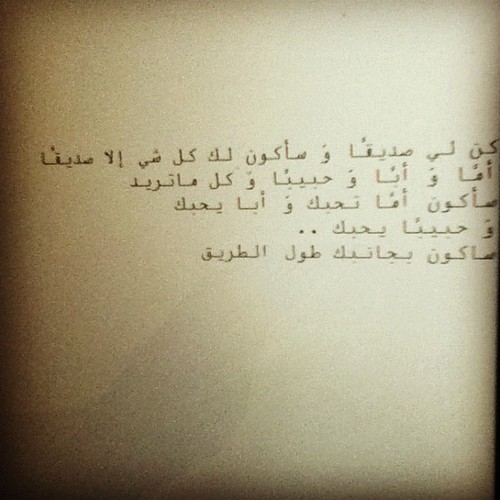 كن لي صديقًا وَ سأكون لك كل شي إلا صديقًا
أمًا وَ أبًا وَ حبيبًا وّ كل ماتريد
سأكون أمًا تحبك وَ أبا يحبك
وَ حبيبًا يحبك ..
ساكون بجانبك طول الطريق